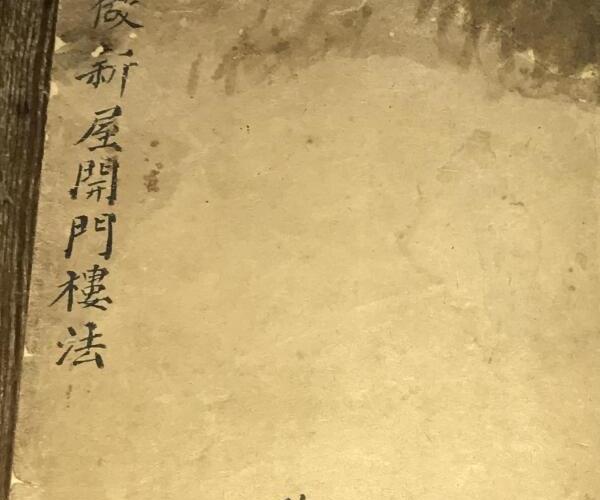 做新屋開門樓法